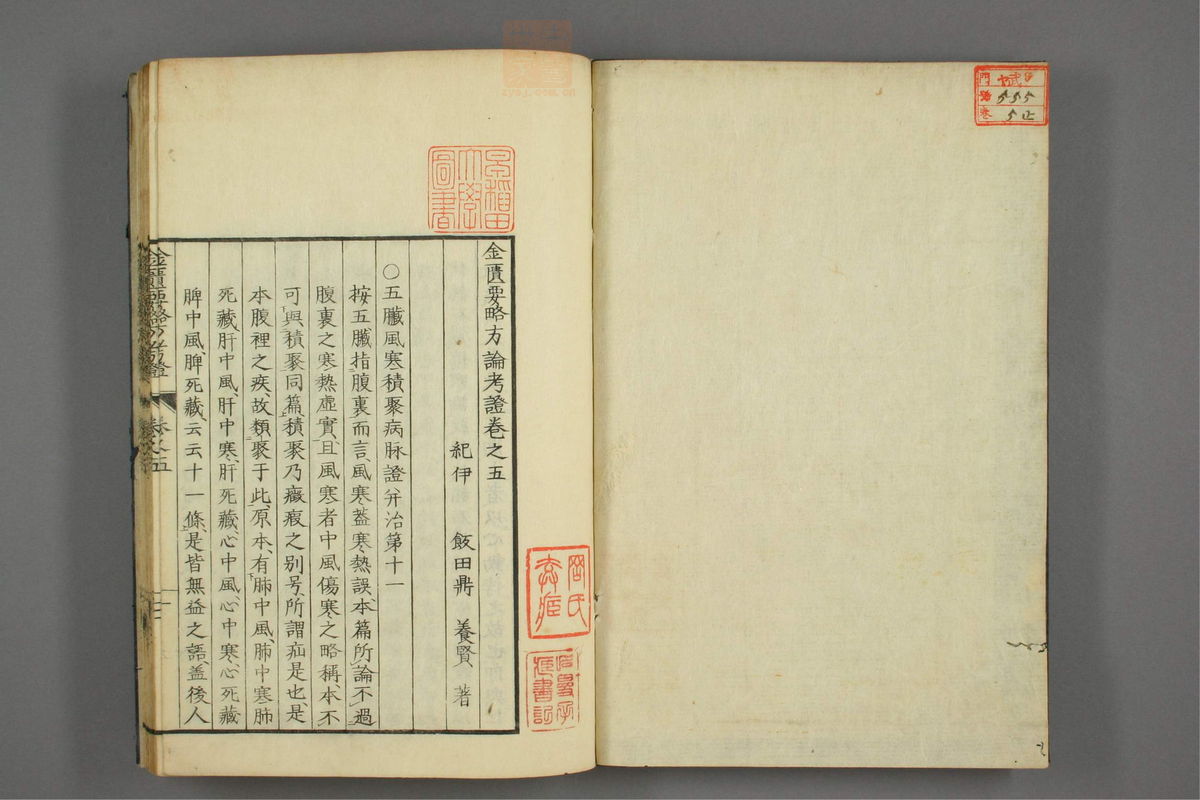 金匱要略方論考證卷之五
紀伊 飯田鼎 養賢 著
○五臟風寒積聚病脉證并治第十一
按五臟指腹裏而言、風寒蓋寒熱誤、本篇所論不過
腹裏之寒熱虛實、且風寒者中風傷寒之略稱、本不
可與積聚同篇、積聚乃癥瘕之別号、所謂疝是也、是
本腹裡之疾、故類聚于此、原本有肺中風、肺中寒肺
死藏、肝中風、肝中寒、肝死藏、心中風、心中寒、心死藏
脾中風、脾死藏、云云十一條、是皆無益之語、蓋後人
金匱要略方考證 卷之五 一
早稻田大學圖書
555
5